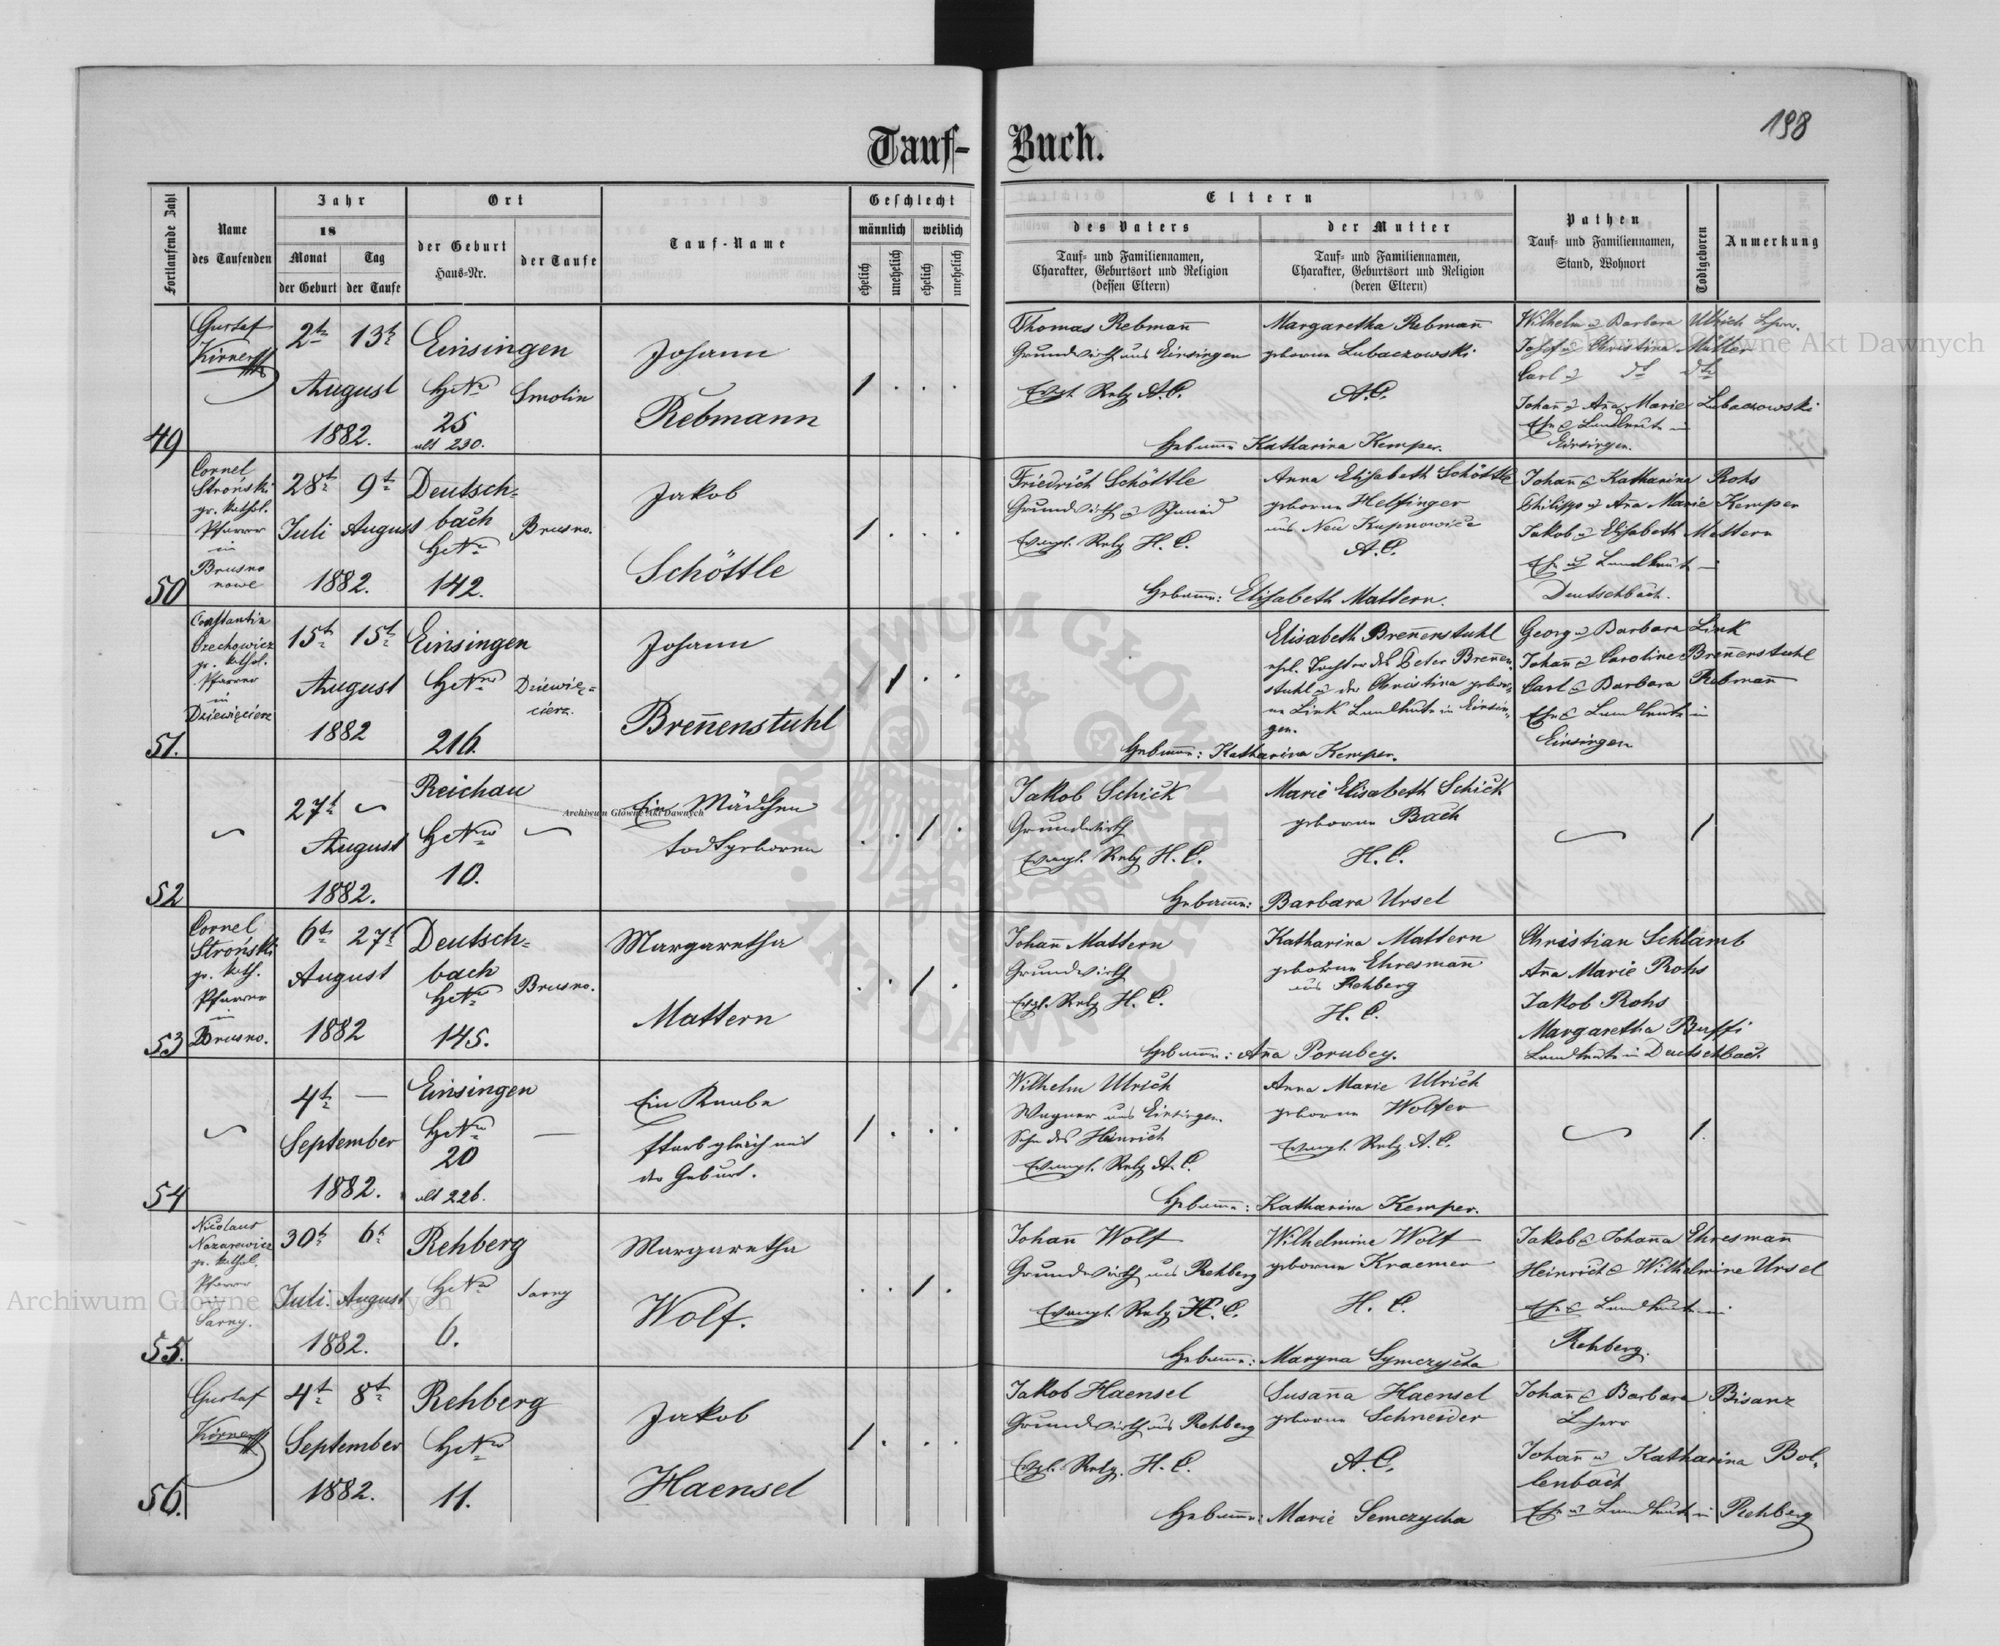 198
Tauf- Buch.
Fortlaufende Zahl
Name
des Taufenden
Jahr
18
Monat Tag
der Geburt der Taufe
Ort
der Geburt
Haus-Nr.
der Taufe
Tauf-Name
Geschlecht
männlich weiblich
ehelich unehelich ehelich unehelich
Eltern
des Vaters
Tauf- und Familiennamen,
Charakter, Geburtsort und Religion
(dessen Eltern)
der Mutter
Tauf- und Familiennamen,
Charakter, Geburtsort und Religion
(deren Eltern)
Pathen
Tauf- und Familiennamen,
Stand, Wohnort
Todtgeboren
Anmerkung
49
Gustaf
2t 13t
August
1882.
Einsingen
HsNro
25
alt 230.
Smolin
Johann
Rebmann
1 . . .
Thomas Rebmañ
Grundwirth aus Einsingen
Evgl. Relg A.C.
Margaretha Rebmañ
geborne Lubaczowski
A.C.
Hebamme Katharina Kemper.
Wilhelm u Barbara Ullrich
Josef u Christina Müller
Carl u dt dto
Johañ u Aña Marie Lubaczowski
Ehe u Landleute in
Einsingen.
50
Cornel
Stroński
gr. kathol.
Pfarrer
in
Brusno
nowe
28t 9t
Juli August
1882.
Deutsch=
bach
HsNro
142.
Brusno.
Jakob
Schöttle
1 . . .
Friedrich Schöttle
Grundwirth u Schmied
Evangl. Relg H. C.
Anna Elisabeth Schöttle
geborne Helfinger
aus Neu Kupnowice
A.C.
Hebamme: Elisabeth Mattern.
Johañ u Katharina Rohs
Philipp u Ana Marie Kemper
Jakob u Elisabeth Mattern
Ehe u Landleute in
Deutschbach.
51.
Constantin
Orzechowicz
gr. kathol.
Pfarrer
in
Dziewięcierz
15t 15t
August
1882
Einsingen
HsNro
216.
Dziewię=
cierz.
Johann
Breñenstuhl
. 1 . .
Elisabeth Breñenstuhl
ehel. Tochter des Peter Breñen-
stuhl u der Christina gebor-
ne Link Landleute in Einsin-
gen.
Hebamme: Katharina Kemper.
Georg u Barbara Link
Johañ u Caroline Breñenstuhl
Carl u Barbara Rebmañ
Ehe u Landleute in
Einsingen
52
27t
August
1882.
Reichau
HsNro
10.
Ein Mädchen
todtgeboren
. . 1 .
Jakob Schick
Grundwirth
Evangl. Relg H. C.
Marie Elisabeth Schick
geborne Bach
H. C.
Hebamme: Barbara Ursel
1
53
Cornel
Stroński
gr. kath.
Pfarrer
in
Brusno.
6t 27t
August
1882
Deutsch=
bach
HsNro
145.
Brusno.
Margaretha
Mattern
. . 1 .
Johañ Mattern
Grundwirth
Evgl. Relg H. C.
Katharina Mattern
geborne Ehresmañ
aus Rehberg
H. C.
Hebamme: Aña Porubey.
Christian Schlamb
Aña Marie Rohs
Jakob Rohs
Margaretha Buffi
Landleute in Deutschbach.
54
4t —
September
1882.
Einsingen
HsNro
20
alt 226.
—
Ein Knabe
starb gleich mit
der Geburt.
1 . . .
Wilhelm Ulrich
Wagner aus Einsingen.
Sohn des Heinrich
Evangl. Relg A. C.
Anna Marie Ulrich
geborne Wolfer
Evangl. Relg A. C.
Hebamme: Katharina Kemper.
1.
55.
Nicolaus
Nazarewicz
gr. kathol.
Pfarrer
in
Sarny.
30t 6t
Juli. August
1882.
Rehberg
HsNro
6.
Sarny
Margaretha
Wolf.
. . 1 .
Johañ Wolf
Grundwirth aus Rehberg
Evangl. Relg H. C.
Wilhelmina Wolf
geborne Kraemer
H. C.
Hebamme: Maryna Symczycha
Jakob u Johaña Ehresmañ
Heinrich u Wilhelmine Ursel
Ehe u Landleute in
Rehberg.
56.
Gustaf
4t 8t
September
1882.
Rehberg
HsNro
11.
Jakob
Haensel
1 . . .
Jakob Haensel
Grundwirth aus Rehberg
Evgl. Relg. H. C.
Susaña Haensel
geborne Schneider
A.C.
Hebamme: Marie Semczycha
Johañ u Barbara Bisanz
Lehrer
Johañ u Katharina Bol-
lenbach
Ehe u Landleute in Rehberg
Archiwum Główne Akt Dawnych
Archiwum Główne Akt Dawnych
Archiwum Główne Akt Dawnych
ARCHIWUM GŁÓWNE
AKT DAWNYCH